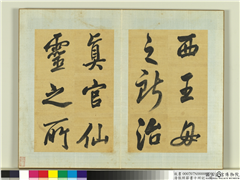 西王母
之所治
真官仙
靈之所